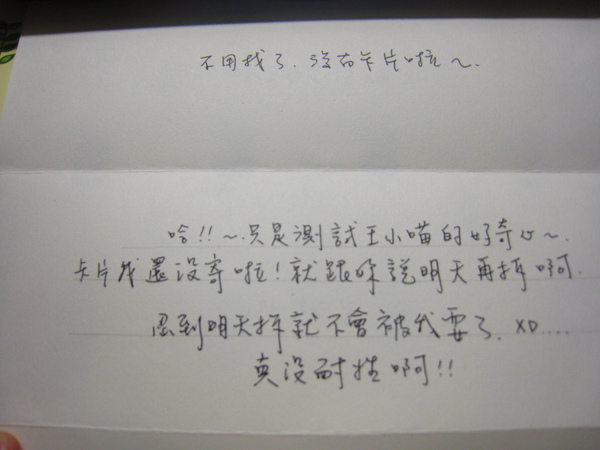 不用找了.沒有卡片啦~.
哈!!~.只是測試王小喵的好奇心~.
卡片我還沒寄啦!就跟妳說明天再拆啊.
忍到明天拆就不會被我耍了.XD....
真沒耐性啊!!